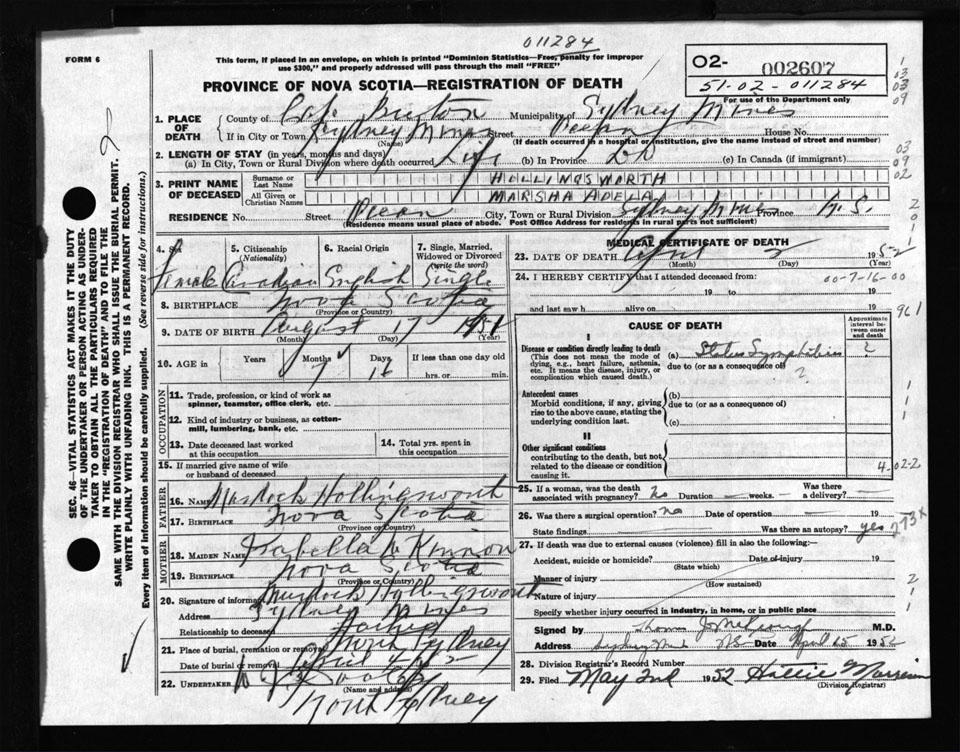 011284
FORM 6
This form, if placed in an envelope, on which is printed "Dominion Statistics—Free, penalty for improper use $300," and properly addressed will pass through the mail "FREE"
O2- 002607
51-02-011284
For use of the Department only
PROVINCE OF NOVA SCOTIA—REGISTRATION OF DEATH
1. PLACE OF DEATH
County of Cape Breton Municipality of Sydney Mines
If in City or Town Sydney Mines Street Ocean House No.
(Name) (If death occurred in a hospital or institution, give the name instead of street and number)
2. LENGTH OF STAY (in years, months and days)
(a) In City, Town or Rural Division where death occurred Life (b) In Province Do (c) In Canada (if immigrant)
3. PRINT NAME OF DECEASED
Surname or Last Name HOLLINGSWORTH
All Given or Christian Names MARSHA ADELLA
RESIDENCE No. Street Ocean City, Town or Rural Division Sydney Mines Province N.S.
(Residence means usual place of abode. Post Office Address for residents in rural parts not sufficient)
4. Sex Female
5. Citizenship (Nationality) Canadian
6. Racial Origin English
7. Single, Married, Widowed or Divorced (write the word) Single
8. BIRTHPLACE Nova Scotia
(Province or Country)
9. DATE OF BIRTH August 17 1951
(Month) (Day) (Year)
10. AGE in Years Months Days If less than one day old
7 hrs. or min.
OCCUPATION
11. Trade, profession, or kind of work as spinner, teamster, office clerk, etc.
12. Kind of industry or business, as cotton-mill, lumbering, bank, etc.
13. Date deceased last worked at this occupation
14. Total yrs. spent in this occupation
15. If married give name of wife or husband of deceased
FATHER
16. NAME Murdock Hollingsworth
17. BIRTHPLACE Nova Scotia
(Province or Country)
MOTHER
18. MAIDEN NAME Isabella
19. BIRTHPLACE Nova Scotia
(Province or Country)
20. Signature of informant Murdock Hollingsworth
Address Sydney Mines
Relationship to deceased Father
21. Place of burial, cremation or removal North Sydney
Date of burial or removal April
22. UNDERTAKER
(Name and address)
North Sydney
MEDICAL CERTIFICATE OF DEATH
23. DATE OF DEATH April 1952
(Month) (Day) (Year)
24. I HEREBY CERTIFY that I attended deceased from:
00-7-16-00
19 to 19
and last saw h alive on 19
961
CAUSE OF DEATH
Approximate interval between onset and death
I
Disease or condition directly leading to death
(This does not mean the mode of dying, e.g., heart failure, asthenia, etc. It means the disease, injury, or complication which caused death.)
(a) Status Lymphaticus ?
due to (or as a consequence of)
?
Antecedent causes
Morbid conditions, if any, giving rise to the above cause, stating the underlying condition last.
(b)
due to (or as a consequence of)
(c)
II
Other significant conditions contributing to the death, but not related to the disease or condition causing it.
4-02-2
25. If a woman, was the death associated with pregnancy? no Duration — weeks. — Was there a delivery? —
26. Was there a surgical operation? no Date of operation — 19
State findings Was there an autopsy? yes
273X
27. If death was due to external causes (violence) fill in also the following:
Accident, suicide or homicide? Date of injury 19
(State which)
Manner of injury
(How sustained)
Nature of injury
Specify whether injury occurred in industry, in home, or in public place
Signed by Thomas J. M.D.
Address Sydney Mines N.S. Date April 1952
28. Division Registrar's Record Number
29. Filed May 2nd 1952 Hattie
(Division Registrar)
SEC. 46—VITAL STATISTICS ACT MAKES IT THE DUTY OF THE UNDERTAKER OR PERSON ACTING AS UNDERTAKER TO OBTAIN ALL THE PARTICULARS REQUIRED IN THE "REGISTRATION OF DEATH" AND TO FILE THE SAME WITH THE DIVISION REGISTRAR WHO SHALL ISSUE THE BURIAL PERMIT.
WRITE PLAINLY WITH UNFADING INK. THIS IS A PERMANENT RECORD.
Every item of information should be carefully supplied. (See reverse side for instructions.)